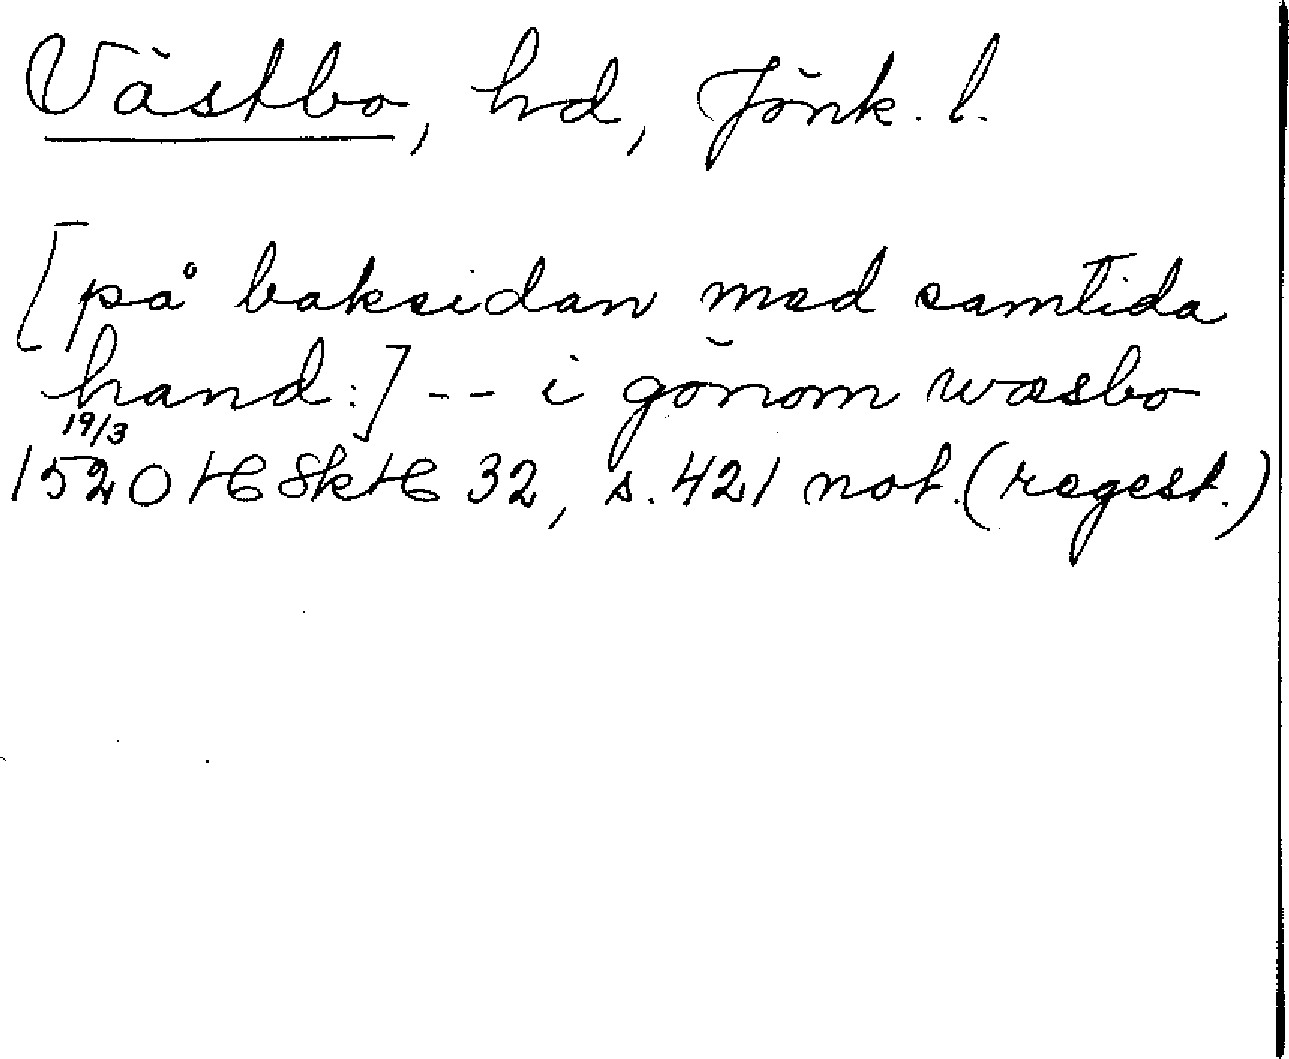 Västbo, hd, Jönk. l.
[på baksidan med samtida
hand:] -- i gönom wasbo
19/3
1520 HSkH 32, s. 421 not. (regest.)